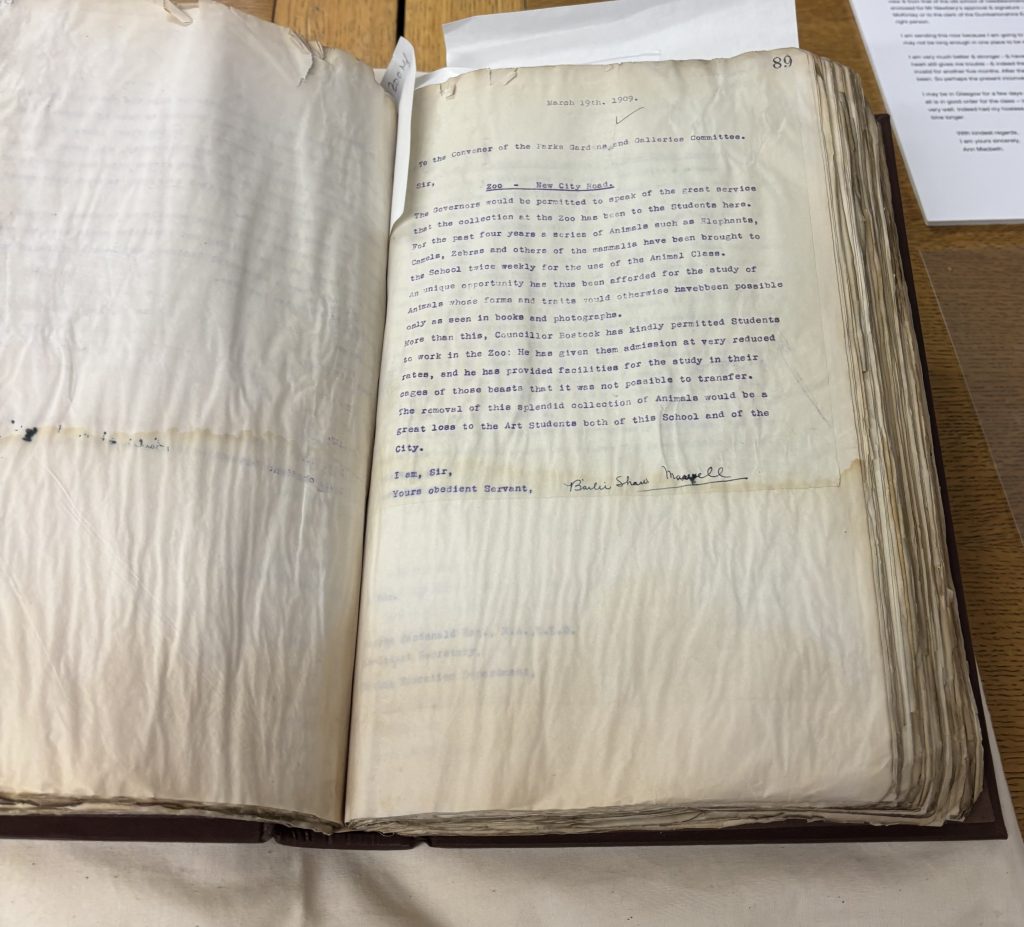 Zoo
89
March 19th. 1909.
To the Convenor of the Parks Gardens, and Galleries Committee.
Sir,
Zoo - New City Road.
The Governors would be permitted to speak of the great service
that the collection at the Zoo has been to the Students here.
For the past four years a series of Animals such as Elephants,
Camels, Zebras and others of the mammalia have been brought to
the School twice weekly for the use of the Animal Class.
An unique opportunity has thus been afforded for the study of
Animals whose forms and traits would otherwise havebben possible
only as seen in books and photographs.
More than this, Councillor Bostock has kindly permitted Students
to work in the Zoo: He has given them admission at very reduced
rates, and he has provided facilities for the study in their
cages of those beasts that it was not possible to transfer.
The removal of this splendid collection of Animals would be a
great loss to the Art Students both of this School and of the
City.
I am, Sir,
Yours obedient Servant,
Bailie Shaw Maxwell
Macdonald Esq.,
Secretary,
Education Department,
right person.
I am sending this now because I am going to
may not be long enough in one place to be
I am very much better & stronger - & have
heart still gives me trouble - & indeed the
invalid for another five months. After the
been. So perhaps the present
I may be in Glasgow for a few days
all is in good order for the class -
very well. Indeed had my hostess
time longer.
With kindest regards,
I am yours sincerely,
Ann Macbeth.